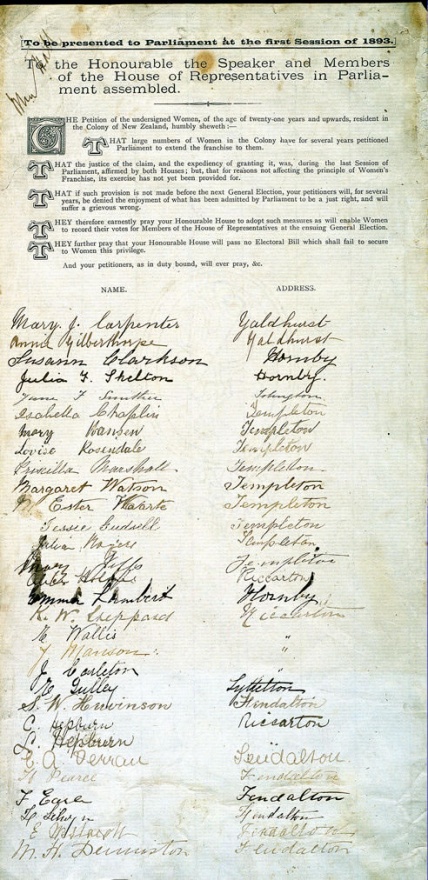 To be presented to Parliament at the first Session of 1893.
To the Honourable the Speaker and Members
of the House of Representatives in Parlia-
ment assembled.
THE Petition of the undersigned Women, of the age of twenty-one years and upwards, resident in
the Colony of New Zealand, humbly sheweth :—
THAT large numbers of Women in the Colony have for several years petitioned
Parliament to extend the franchise to them.
THAT the justice of the claim, and the expediency of granting it, was, during the last Session of
Parliament, affirmed by both Houses; but, that for reasons not affecting the principle of Women's
Franchise, its exercise has not yet been provided for.
THAT if such provision is not made before the next General Election, your petitioners will, for several
years, be denied the enjoyment of what has been admitted by Parliament to be a just right, and will
suffer a grievous wrong.
THEY therefore earnestly pray your Honourable House to adopt such measures as will enable Women
to record their votes for Members of the House of Representatives at the ensuing General Election.
THEY further pray that your Honourable House will pass no Electoral Bill which shall fail to secure
to Women this privilege.
And your petitioners, as in duty bound, will ever pray, &c.
NAME. ADDRESS.
Mary J. Carpenter Yaldhurst
Annie Gilberthorpe Yaldhurst
Susann Clarkson Hornby
Julia F. Shelton Hornby.
Isabella Chaplin Templeton
Mary Hansen Templeton
Louise Rosendale Templeton
Priscilla Marshall. Templeton
Margaret Watson Templeton
Ester Templeton
Jessie Templeton
Templeton
Mary Templeton
Riccarton
Emma Lambert Hornby
K. W. Sheppard Riccarton
Wallis "
Y Manson "
J Carleton "
Gulley Lyttelton
S. W. Fendalton
C. Hepburn Riccarton
C. Hepburn
C. A. Fendalton
Pearce Fendalton
F Earle Fendalton
Fendalton
E Fendalton
M. H. Fendalton